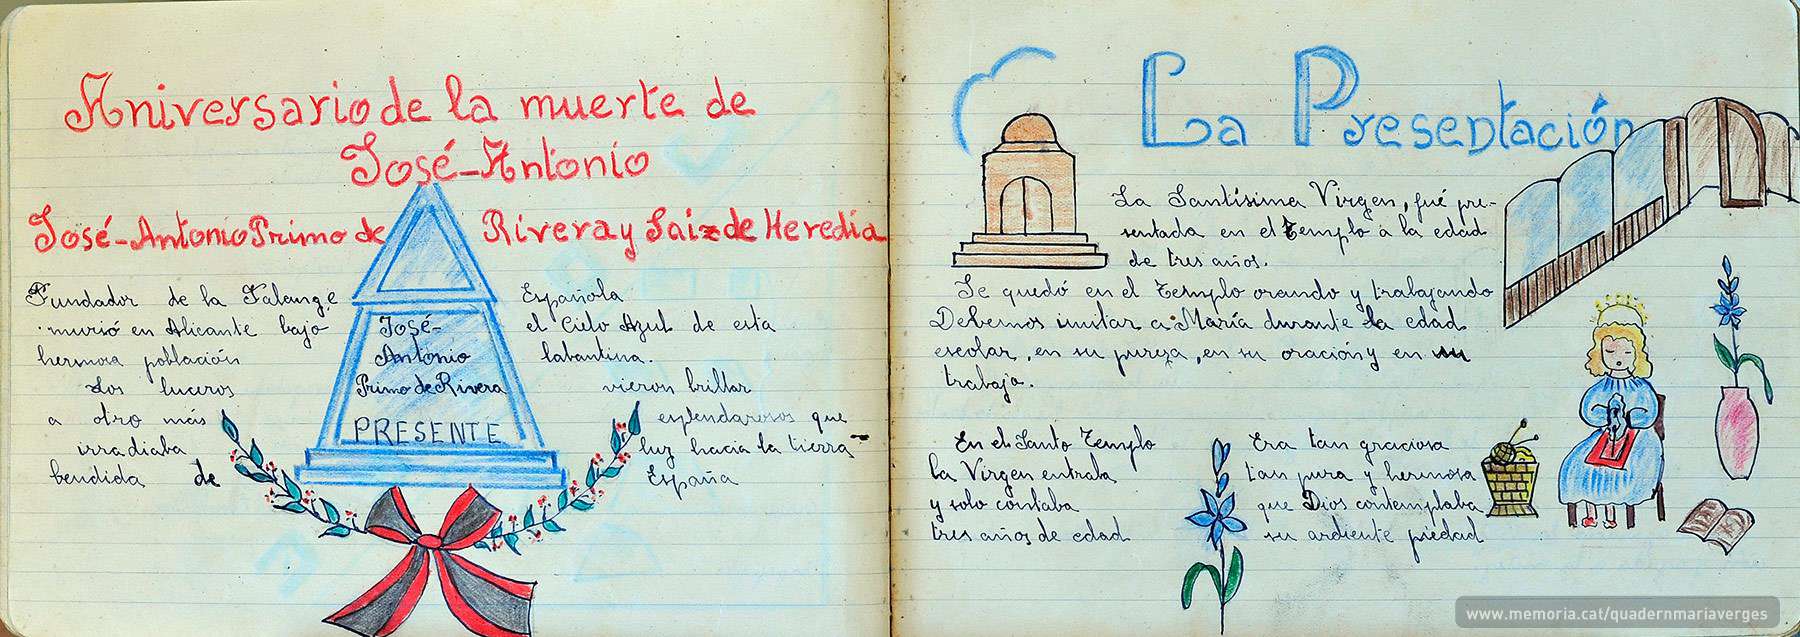 Aniversario de la muerte de
José-Antonio
José-Antonio Primo de Rivera y Saiz de Heredia
Fundador de la Falange Española
murió en Alicante bajo el Cielo Azul de esta
hermosa población labantina.
Los luceros vieron brillar
a otro más esplendoroso que
irradiaba luz hacia la tierra
bendida de España
José-
Antonio
Primo de Rivera
PRESENTE
La Presentación
La Santísima Virgen, fué pre-
sentada en el Templo a la edad
de tres años.
Se quedó en el Templo orando y trabajando
Debemos imitar a María durante la edad
escolar, en su pureza, en su oración y en su
trabajo.
En el Santo Templo
la Virgen entraba
y solo contaba
tres años de edad
Era tan graciosa
tan pura y hermosa
que Dios contemplaba
su ardiente piedad
www.memoria.cat/quadernmariaverges